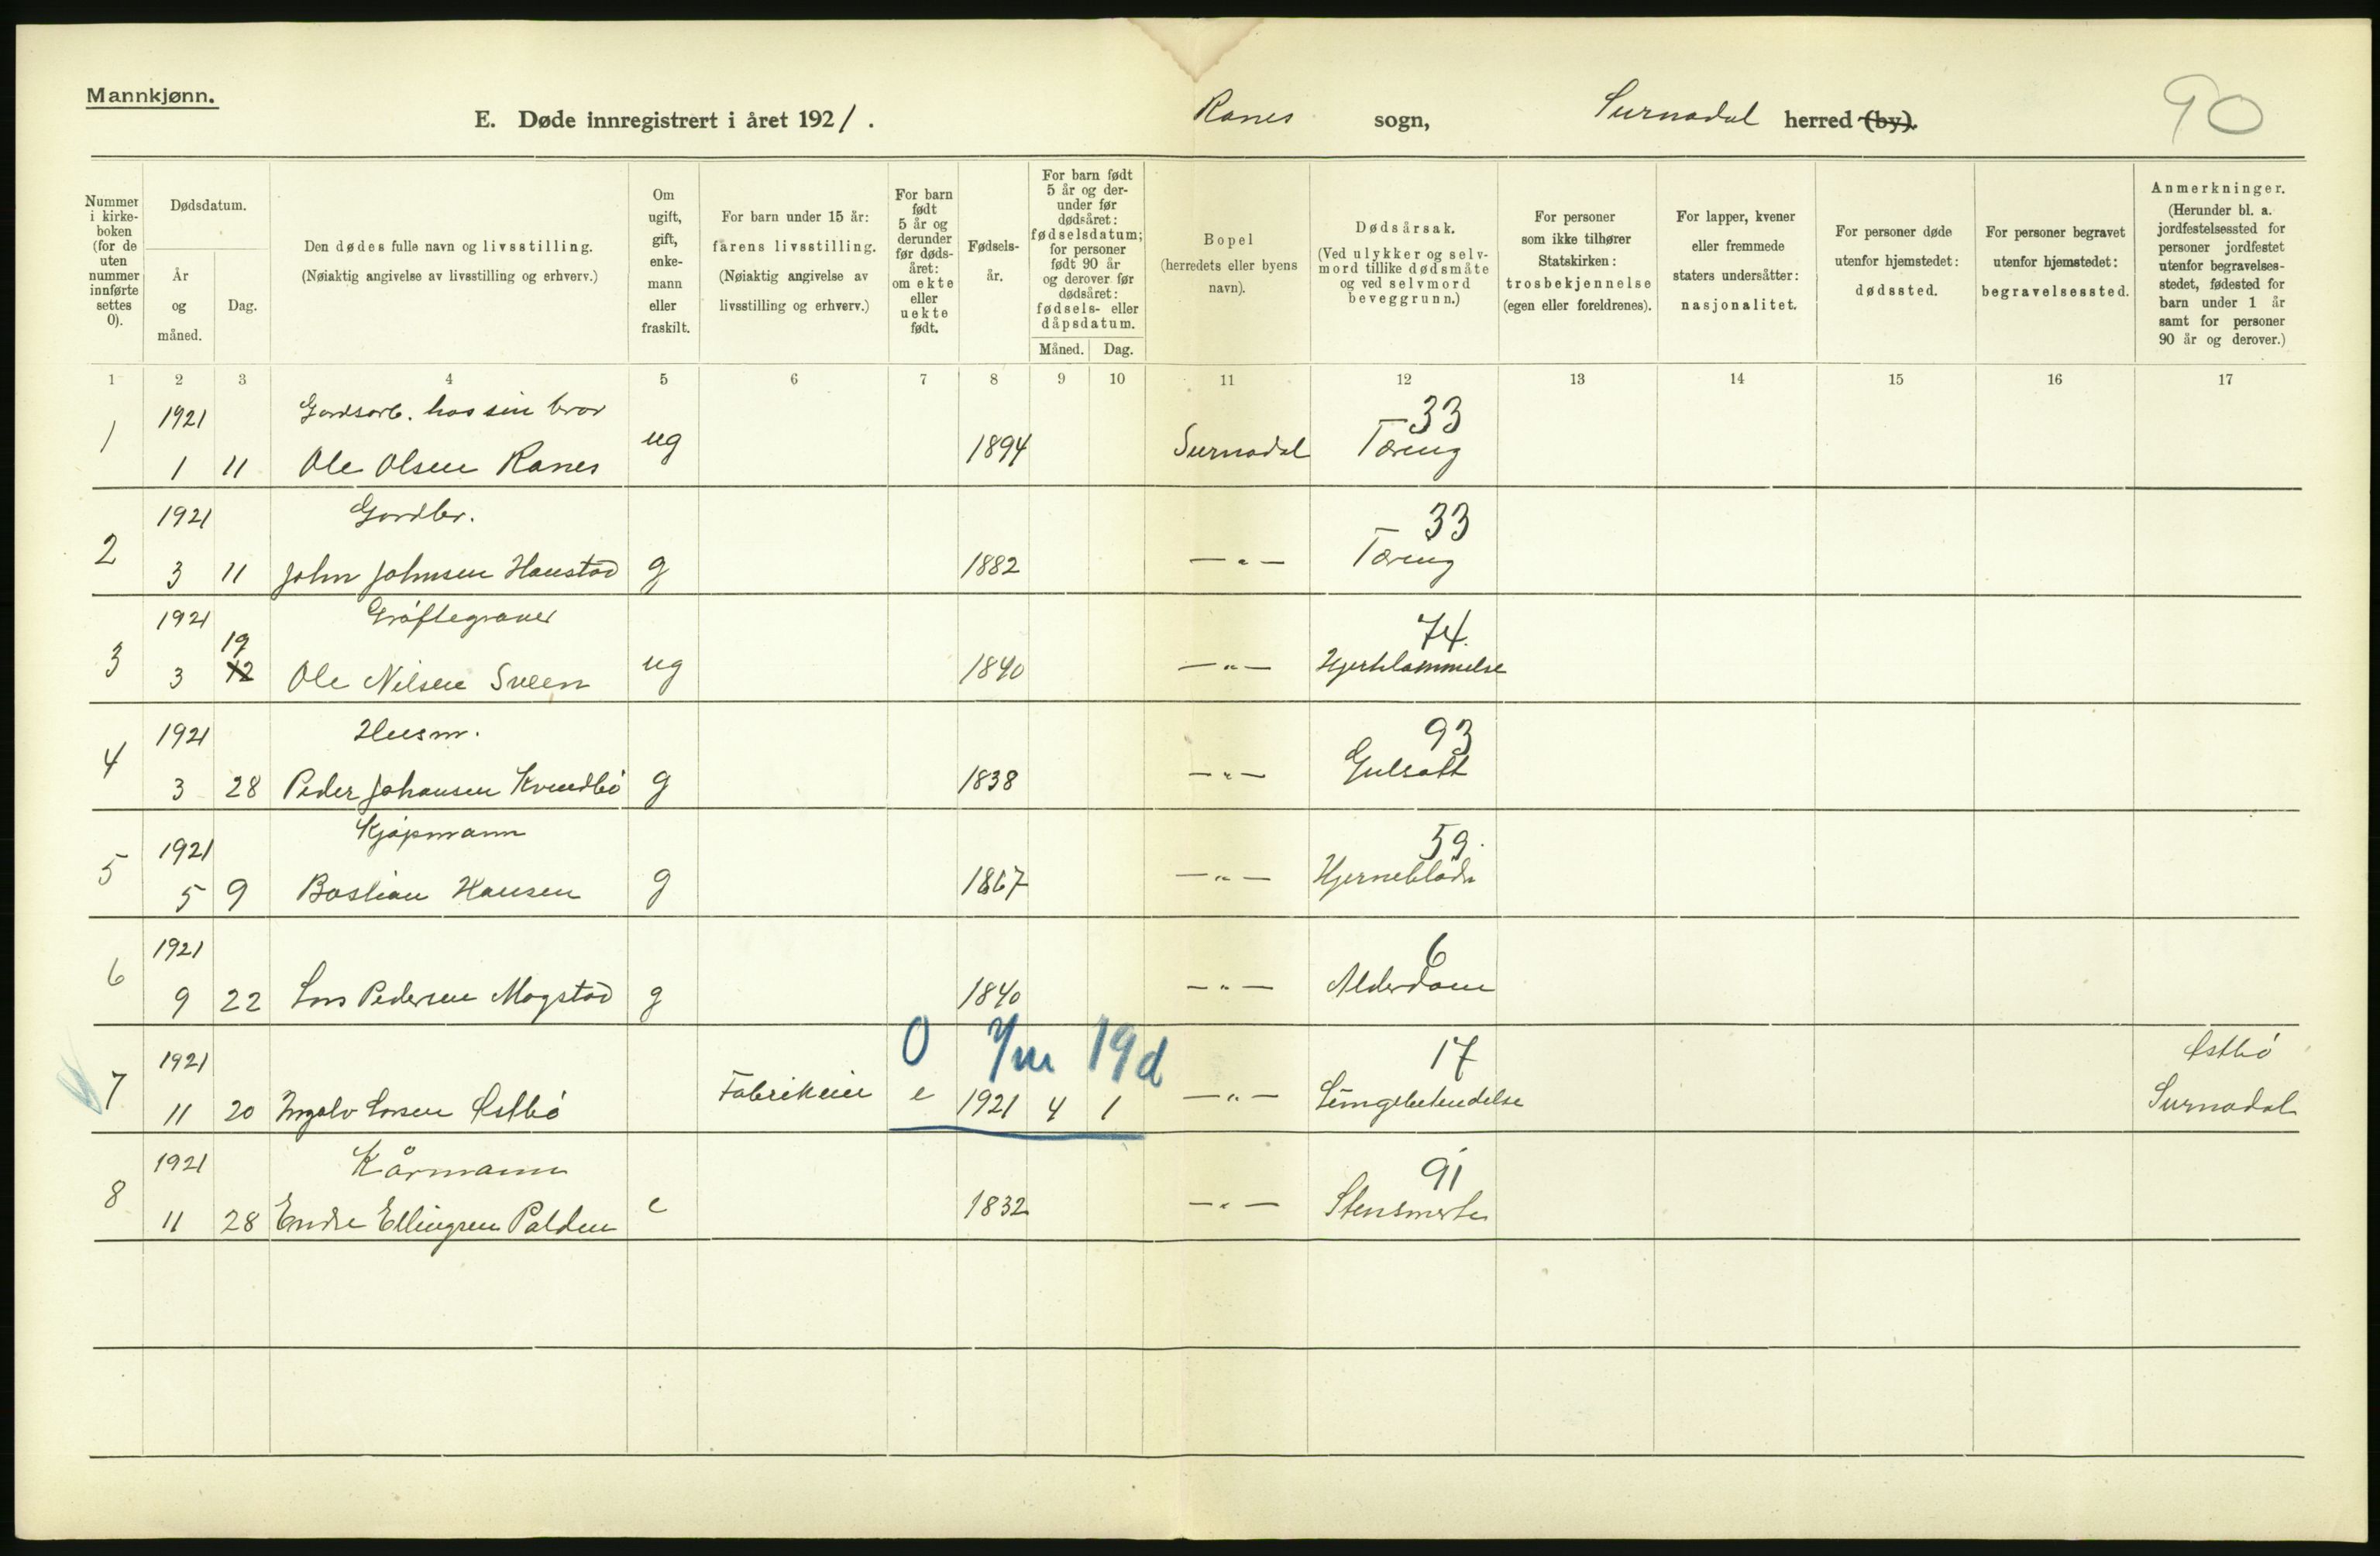 Mannkjønn.
E. Døde innregistrert i året 1921. Ranes sogn, Surnadal herred (by).
90
Nummer i kirke-boken (for de uten nummer innførte settes 0).
Dødsdatum.
År og måned.
Dag.
Den dødes fulle navn og livsstilling.
(Nøiaktig angivelse av livsstilling og erhverv.)
Om ugift, gift, enke-mann eller fraskilt.
For barn under 15 år:
farens livsstilling.
(Nøiaktig angivelse av livsstilling og erhverv.)
For barn født 5 år og derunder før døds-året: om ekte eller uekte født.
Fødsels-år.
For barn født 5 år og der-under før dødsåret: fødselsdatum; for personer født 90 år og derover før dødsåret: fødsels- eller dåpsdatum.
Måned. Dag.
Bopel
(herredets eller byens navn).
Dødsårsak.
(Ved ulykker og selv-mord tillike dødsmåte og ved selvmord beveggrunn.)
For personer som ikke tilhører Statskirken: trosbekjennelse (egen eller foreldrenes).
For lapper, kvener eller fremmede staters undersåtter: nasjonalitet.
For personer døde utenfor hjemstedet: dødssted.
For personer begravet utenfor hjemstedet: begravelsessted.
Anmerkninger.
(Herunder bl. a. jordfestelsessted for personer jordfestet utenfor begravelses-stedet, fødested for barn under 1 år samt for personer 90 år og derover.)
1 2 3 4 5 6 7 8 9 10 11 12 13 14 15 16 17
1921 Gardsarb. hos sin bror 33
1 1 11 Ole Olsen Ranes ug 1894 Surnadal Tæring
1921 Gardbr. 33
2 3 11 John Johnsen Haustad g 1882 — " — Tæring
1921 19 Grøftegraver 74.
3 3 12 Ole Nilsen Sveen ug 1840 — " — Hjertelammelse
1921 Husm. 93
4 3 28 Peder Johansen Kvendbø g 1838 — " — Gulsått
1921 Kjøpmann 59.
5 5 9 Bastian Hansen g 1867 — " — Hjerneblødn
1921 6
6 9 22 Lars Pedersen Mogstad g 1840 — " — Alderdom
1921 0 7m 19d 17 Østbø
7 11 20 Ingolv Larsen Østbø Fabrikeier e 1921 4 1 — " — Lungebetendelse Surnadal
1921 Kårmann 91
8 11 28 Endre Ellingsen Polden e 1832 — " — Stensmerter